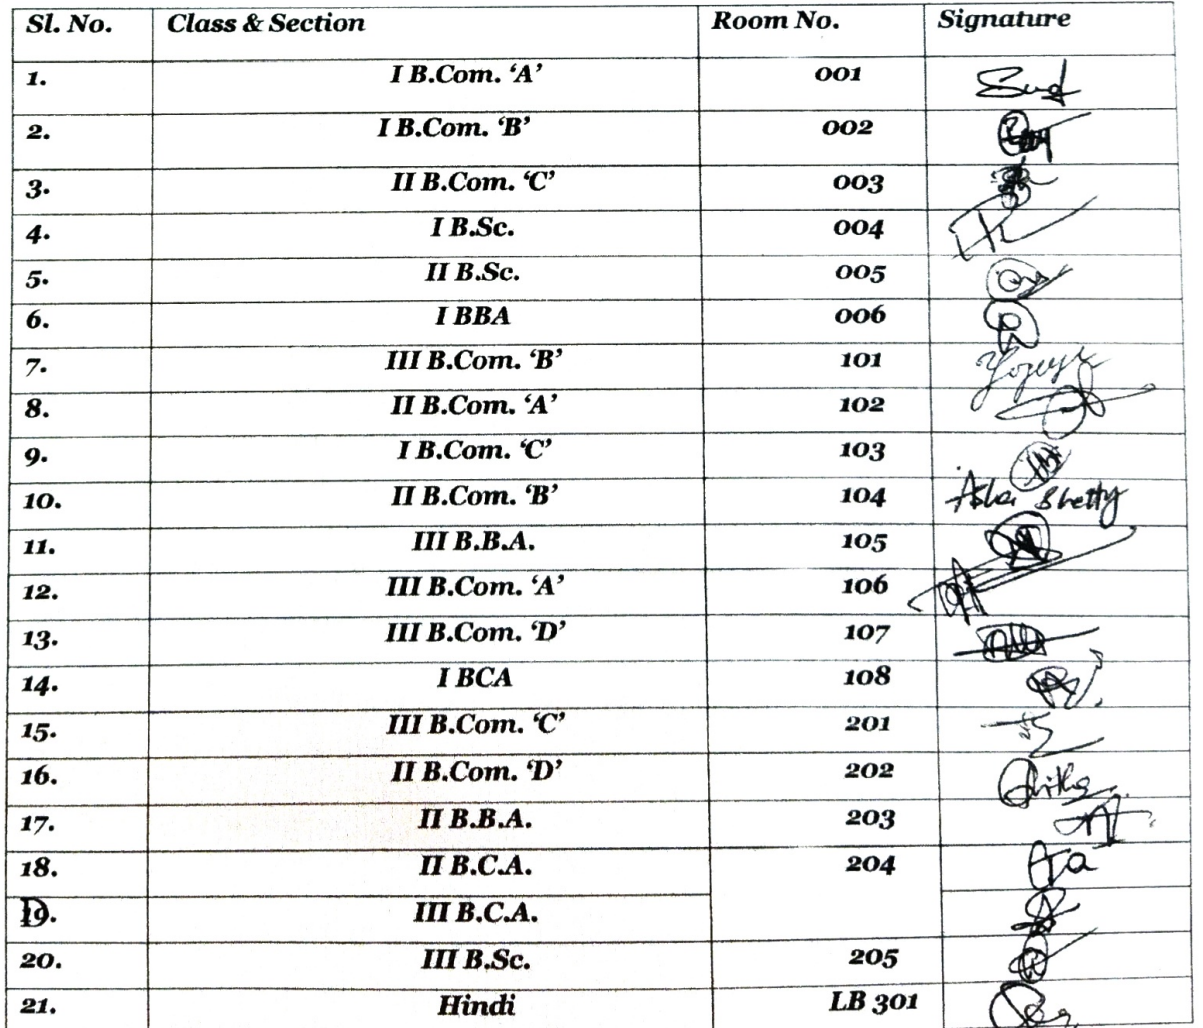 Sl. No. Class & Section Room No. Signature
1. I B.Com. ‘A’ 001
2. I B.Com. ‘B’ 002
3. II B.Com. ‘C’ 003
4. I B.Sc. 004
5. II B.Sc. 005
6. I BBA 006
7. III B.Com. ‘B’ 101
8. II B.Com. ‘A’ 102
9. I B.Com. ‘C’ 103
10. II B.Com. ‘B’ 104 Asha Shetty
11. III B.B.A. 105
12. III B.Com. ‘A’ 106
13. III B.Com. ‘D’ 107
14. I BCA 108
15. III B.Com. ‘C’ 201
16. II B.Com. ‘D’ 202
17. II B.B.A. 203
18. II B.C.A. 204
19. III B.C.A.
20. III B.Sc. 205
21. Hindi LB 301